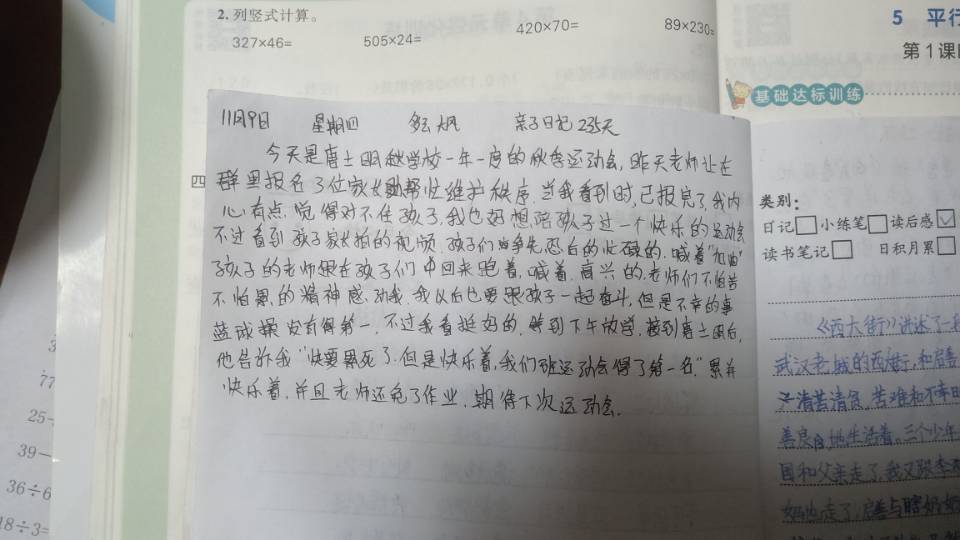 2. 列竖式计算。
327×46=
505×24=
420×70=
89×230=
5 平行
第1课
基础达标训练
11月9日 星期四 亲子日记235天
今天是唐士明秋学校一年一度的秋季运动会,昨天老师让在
四
群里报名了位家长帮忙维护秩序.当我看到时,已报完了,我内
心有点觉得对不住孩子,我也好想陪孩子过一个快乐的运动会
不过看到孩子家长拍的视频,孩子们争先恐后的忙碌的,喊着"加油"
孩子的老师跟在孩子们中回来跑着,喊着,高兴的,老师们不怕苦
不怕累的精神感动我,我以后也要跟孩子一起奋斗,但是不幸的事
篮球操没有得第一,不过我看挺好的,等到下午放学,接到唐士明后,
他告诉我"快要累死了,但是快乐着,我们班运动会得了第一名"累并
快乐着,并且老师还免了作业,期待下次运动会.
类别:
日记 小练笔 读后感
读书笔记 日积月累
《西大街》讲述了一
武汉老城的西大街,和启善
清苦清贫,苦难和不幸
善良的她生活着。三个少年
国和父亲走了,我又跟
妈也走了,启善与瞎奶奶
77
25-
39-
36÷6
18÷3=